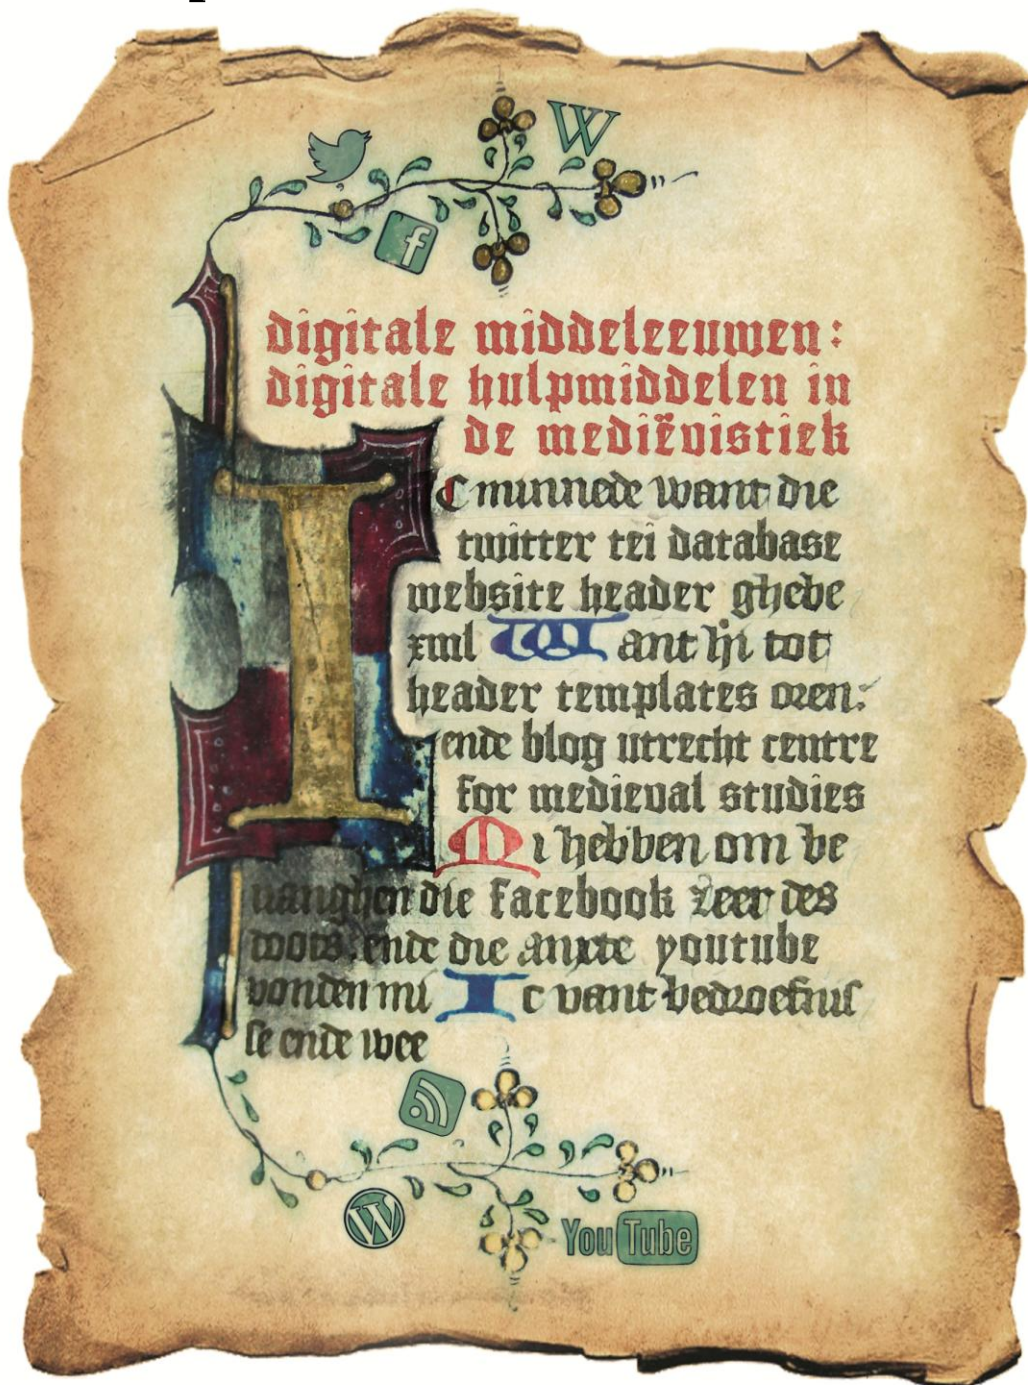 W
f
digitale middeleeuwen:
digitale hulpmiddelen in
de mediëvistiek
I C minnede want die
twitter tei database
website header ghebe
xml Want hi tot
header templates oren:
ende blog utrecht centre
for medieval studies
Mi hebben om be
uanghen die facebook zeer des
doots. ende die anxte youtube
vonden mi Ic vant bedroefnis
se ende wee
W
YouTube